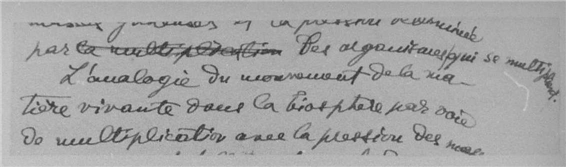 masses gazeuses et la pression déterminée
par la multiplication des organismes, qui se multiplient.
L'analogie du mouvement de la ma-
tière vivante dans la biosphère par voie
de multiplication avec la pression des mas-